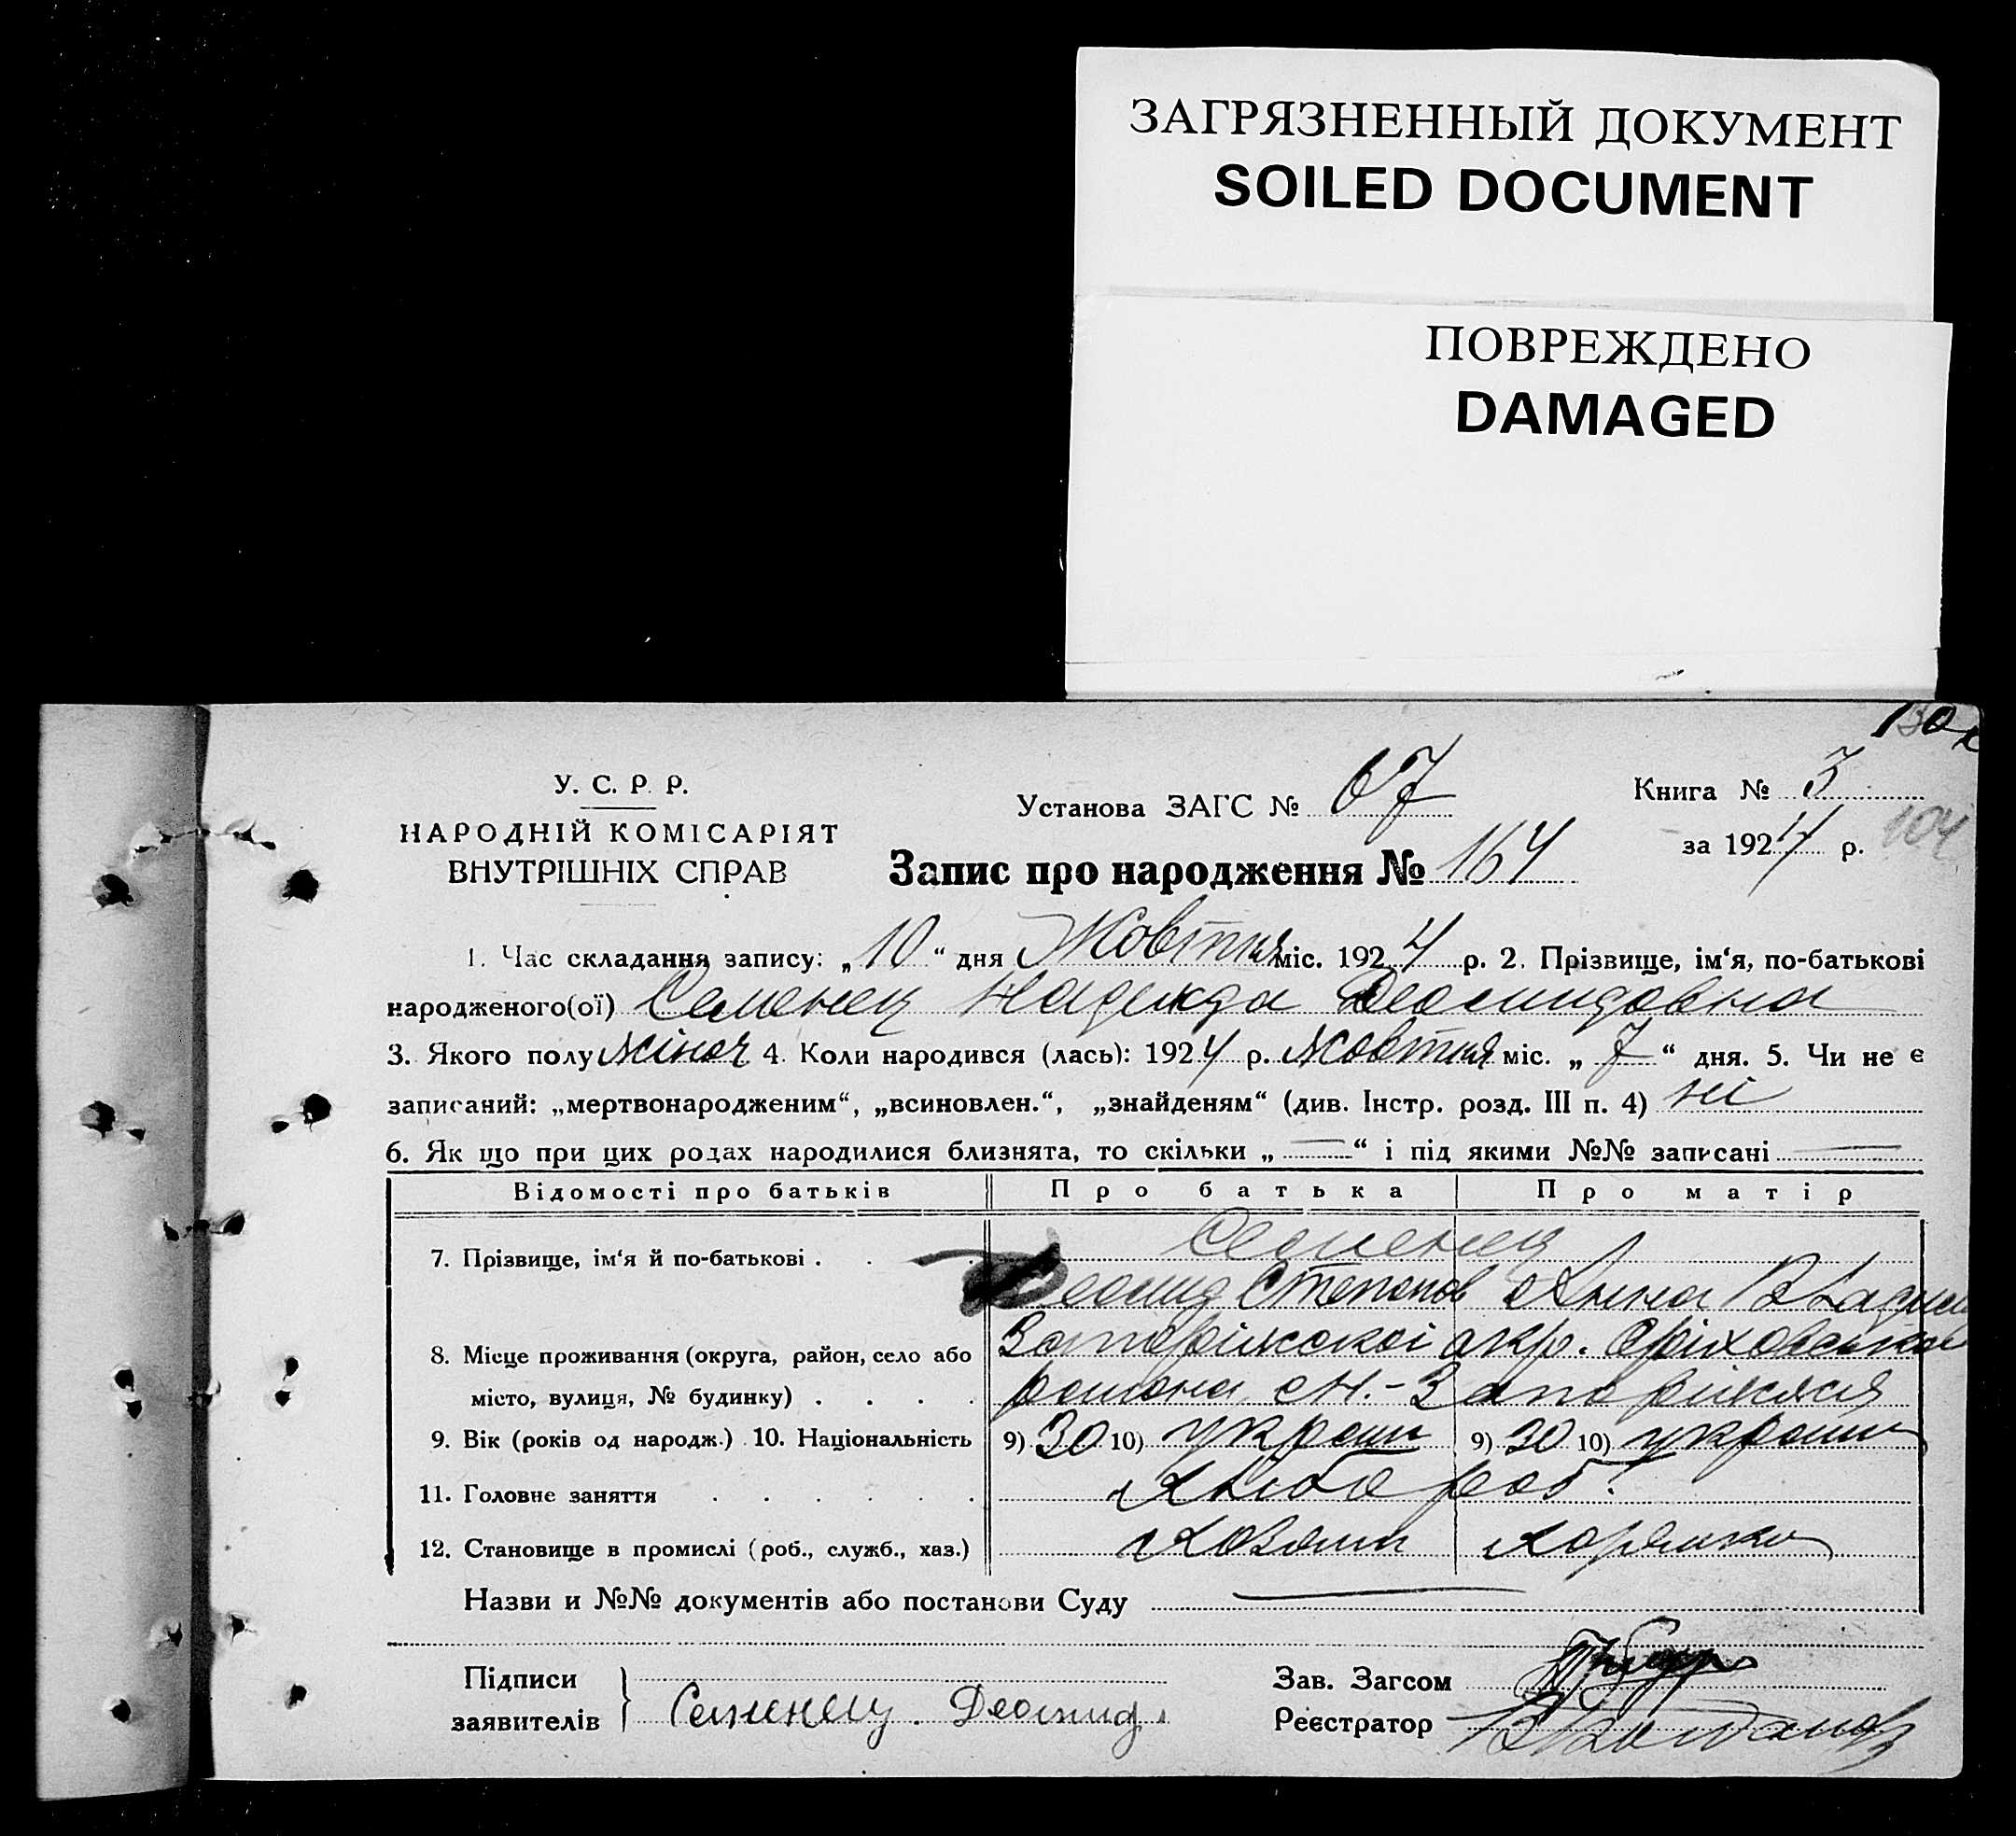 ЗАГРЯЗНЕННЫЙ ДОКУМЕНТ
SOILED DOCUMENT
ПОВРЕЖДЕНО
DAMAGED
У. С. Р. Р.
НАРОДНІЙ КОМІСАРІЯТ
ВНУТРІШНІХ СПРАВ
Установа ЗАГС № 67
Книга № 3
за 1924 р. 104
Запис про народження № 164
1. Час складання запису: „10“ дня Жовтня міс. 1924 р. 2. Прізвище, ім‘я, по-батькові
народженого(ої) Семенец Надежда Деомидовна
3. Якого полу жіноч 4. Коли народився (лась): 1924 р. Жовтня міс. „7“ дня. 5. Чи не є
записаний: „мертвонародженим“, „всиновлен.“, „знайденям“ (див. Інстр. розд. III п. 4) ні
6. Як що при цих родах народилися близнята, то скільки „—“ і під якими №№ записані —
Відомості про батьків Про батька Про матір
7. Прізвище, ім‘я й по-батькові . . . Семенец
Деомид Степанов Анна
8. Місце проживання (округа, район, село або Запоріжскоі окр. Оріховського
місто, вулиця, № будинку) . . . . района, с. Н.-Запоріжжя
9. Вік (років од народж.) 10. Національність 9) 30 10) украин 9) 30 10) украин
11. Головне заняття . . . . . . Хлібороб
12. Становище в промислі (роб., служб., хаз.) Хозяин
Назви и №№ документів або постанови Суду —
Підписи
заявителів Семенец. Деомид.
Зав. Загсом
Реєстратор